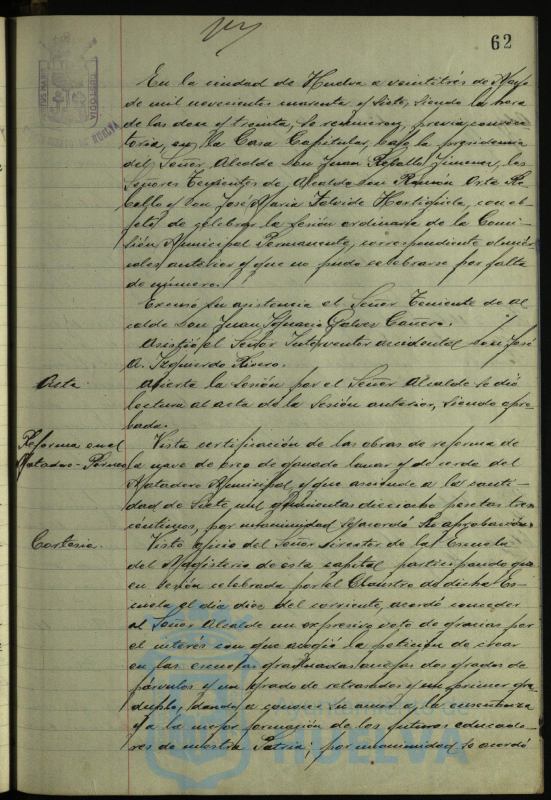 62
En la ciudad de Huelva a veintitrés de Mayo
de mil novecientos cuarenta y siete, siendo la hora
de las doce y treinta, se reunieron, previa convoca-
toria, en la Casa Capitular, bajo la presidencia
del Señor Alcalde Don Juan Rebollo Jimenez, los
Señores Tenientes de Alcalde Don Ramón Orta Re-
bollo y Don José María Hortigüela, con ob-
jeto de celebrar la sesión ordinaria de la Comi-
sión Municipal Permanente, correspondiente al miér-
coles anterior y que no pudo celebrarse por falta
de número.
Excusó su asistencia el Señor Teniente de Al-
calde Don Juan Ignacio Galvez Cañero.
Asistió el Señor Interventor accidental Don José
A. Izquierdo Rivero.
Acta.
Abierta la sesión por el Señor Alcalde se dió
lectura al acta de la sesión anterior, siendo apro-
bada.
Reforma en el
Matadero
Vista certificación de las obras de reforma de
la nave de oreo de ganado lanar y de cerda del
Matadero Municipal y que asciende a la canti-
dad de siete mil quinientas dieciocho pesetas tres
centimos, por unanimidad se acordó su aprobación.
Cortesia.
Visto oficio del Señor Director de la Escuela
del Magisterio de esta capital participando que
en sesión celebrada por el Claustro de dicha Es-
cuela el dia doce del corriente, acordó conceder
al Señor Alcalde un expresivo voto de gracias por
el interés con que acogió la petición de crear
en las escuelas graduadas anejas dos grados de
párvulos y un grado de retrasados y un primer gra-
do, dando a conocer su amor a la enseñanza
y a la mejor formación de los futuros educado-
res de nuestra Patria; por unanimidad se acordó
HUELVA